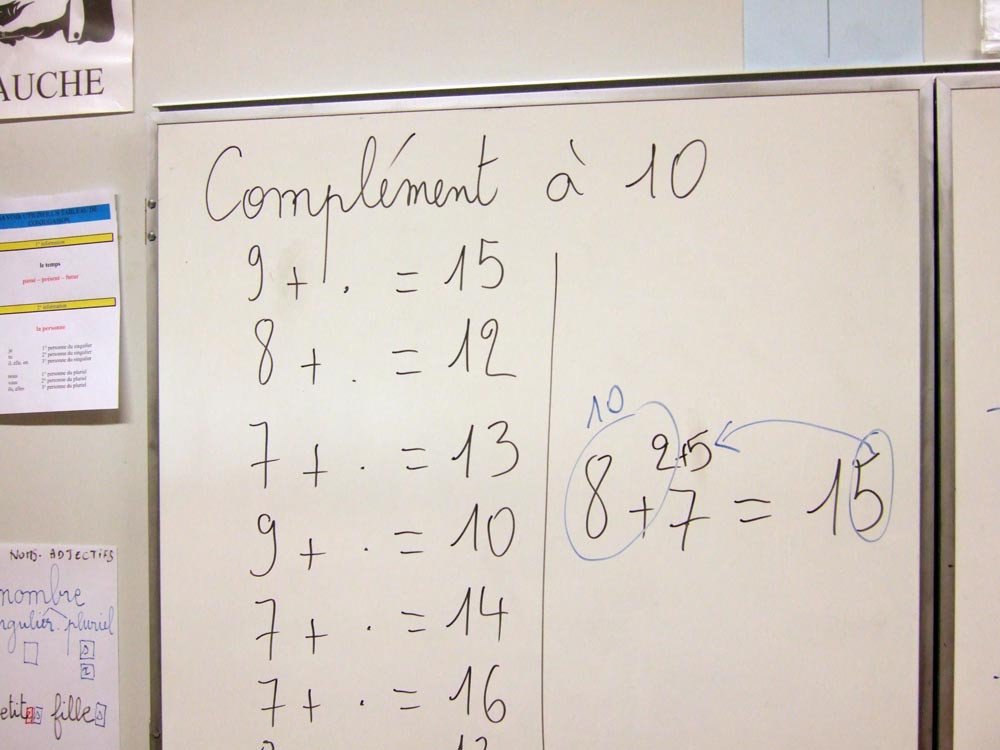 AUCHE
Complément à 10
9 + . = 15
8 + . = 12
7 + . = 13
9 + . = 10
7 + . = 14
7 + . = 16
10
2+5
8 + 7 = 15
1e information
le temps
passé - présent - futur
2e information
la personne
je 1e personne du singulier
tu 2e personne du singulier
il, elle, on 3e personne du singulier
nous 1e personne du pluriel
vous 2e personne du pluriel
ils, elles 3e personne du pluriel
NOMS - ADJECTIFS
nombre
ngulier pluriel
s
x
etites filles